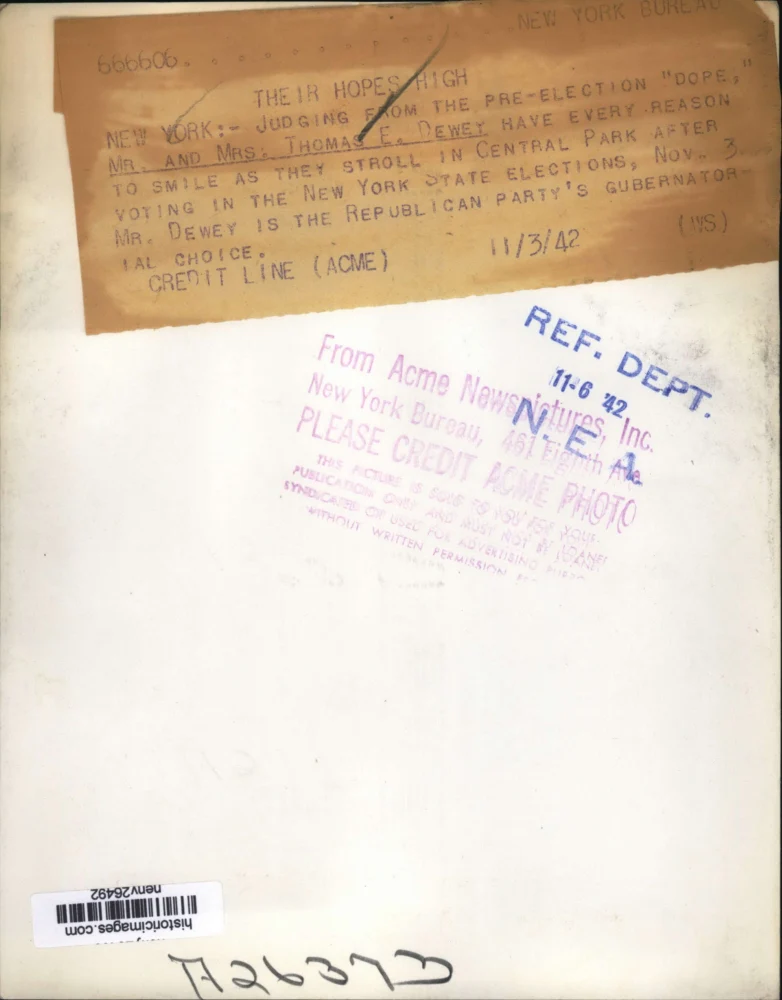 NEW YORK BUREAU
666606
THEIR HOPES HIGH
NEW YORK:- JUDGING FROM THE PRE-ELECTION "DOPE,"
MR. AND MRS. THOMAS E. DEWEY HAVE EVERY REASON
TO SMILE AS THEY STROLL IN CENTRAL PARK AFTER
VOTING IN THE NEW YORK STATE ELECTIONS, NOV. 3.
MR. DEWEY IS THE REPUBLICAN PARTY'S GUBERNATOR-
IAL CHOICE.
CREDIT LINE (ACME) 11/3/42 (WS)
REF. DEPT.
11-6 '42
N. E. A.
From Acme Newspictures, Inc.
New York Bureau, 461 Eighth Ave
PLEASE CREDIT ACME PHOTO
THIS PICTURE IS SOLD TO YOU FOR YOUR
PUBLICATION ONLY AND MUST NOT BE LOANED
SYNDICATED OR USED FOR ADVERTISING
WITHOUT WRITTEN PERMISSION
historicimages.com
nenv26492
A26373